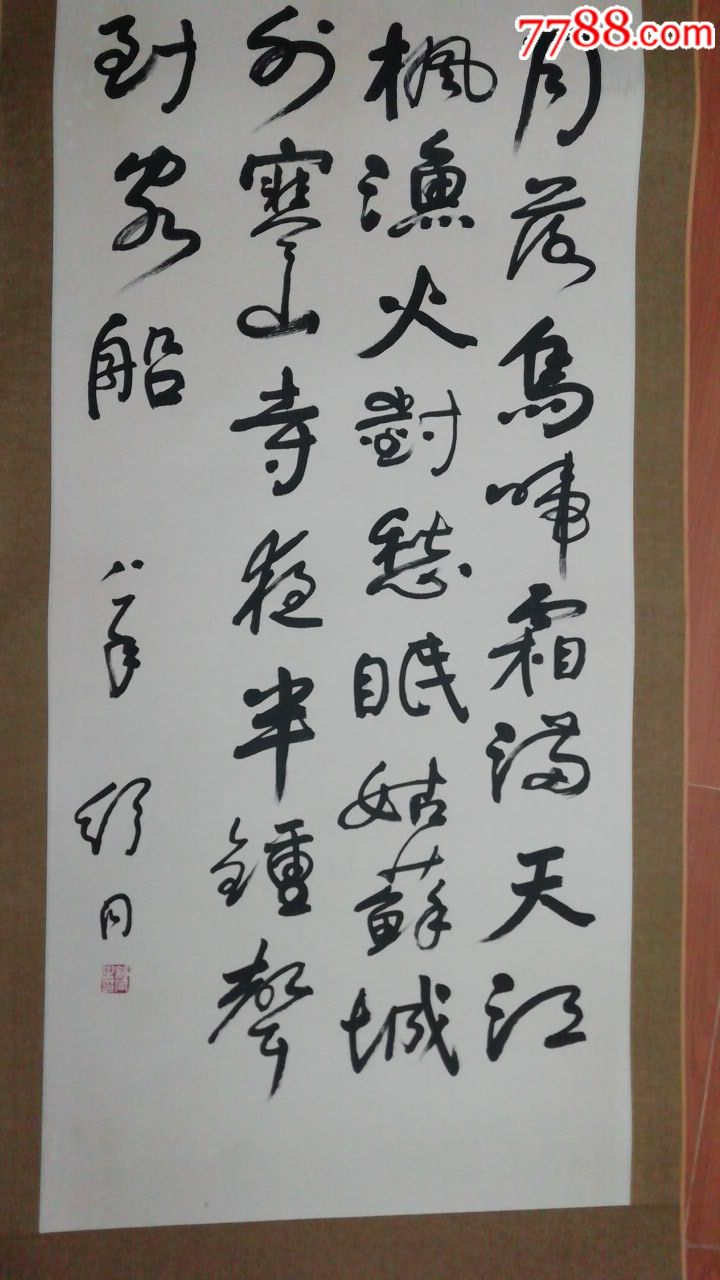 7788.com
月落烏啼霜滿天江
楓漁火對愁眠姑蘇城
外寒山寺夜半鐘聲
到客船
舒同